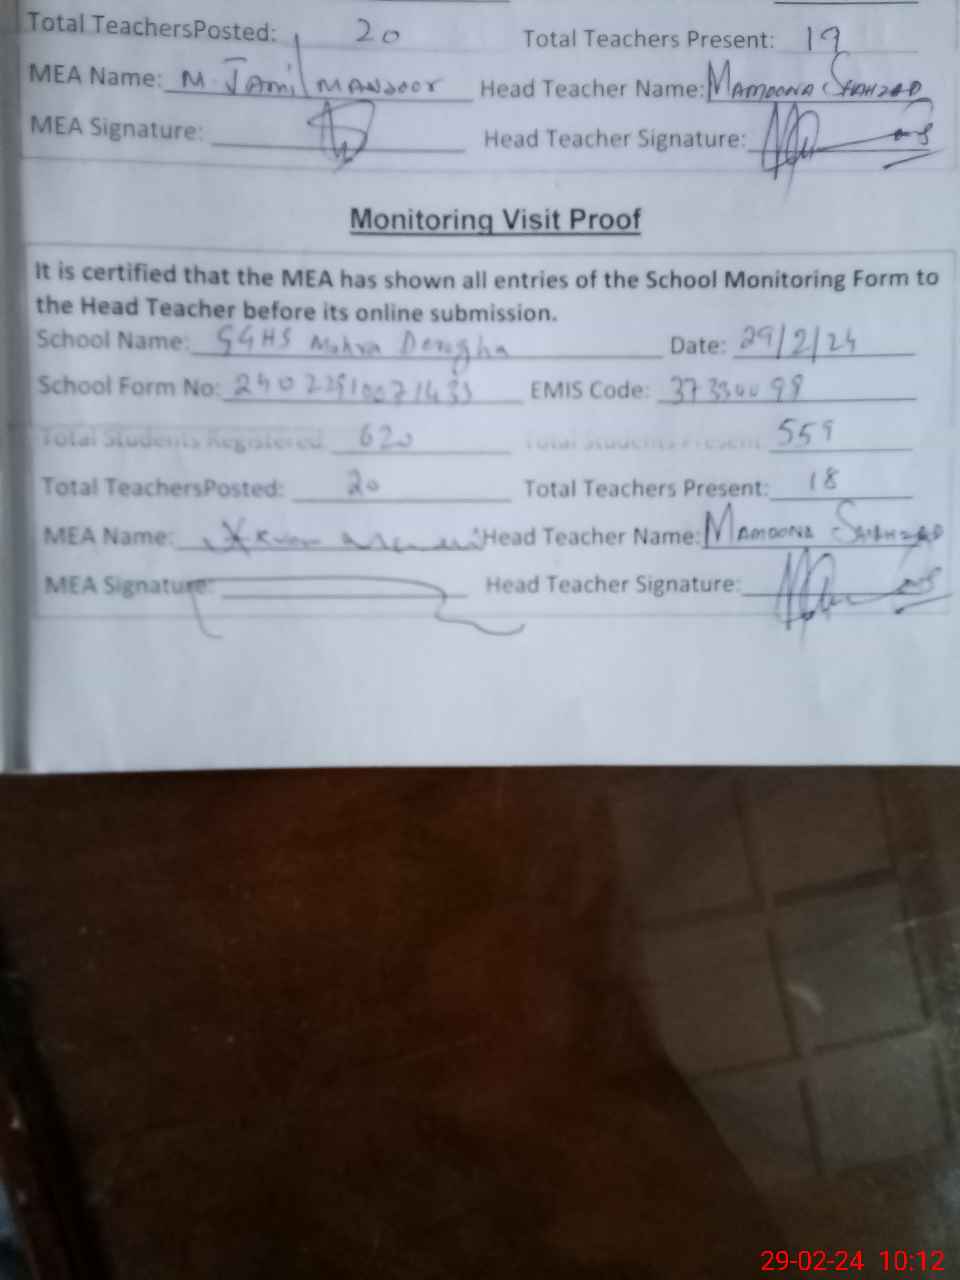 Total TeachersPosted: 20 Total Teachers Present: 19
MEA Name: M. Jamil MANSOOR Head Teacher Name: MAMOONA SHAHZAD
MEA Signature: Head Teacher Signature:
Monitoring Visit Proof
It is certified that the MEA has shown all entries of the School Monitoring Form to
the Head Teacher before its online submission.
School Name: GGHS Mohra Date: 29/2/24
School Form No: EMIS Code:
Total Students Registered 620 Total Students Present 559
Total TeachersPosted: 20 Total Teachers Present: 18
MEA Name: Head Teacher Name: MAMOONA SHAHZAD
MEA Signature: Head Teacher Signature:
29-02-24 10:12